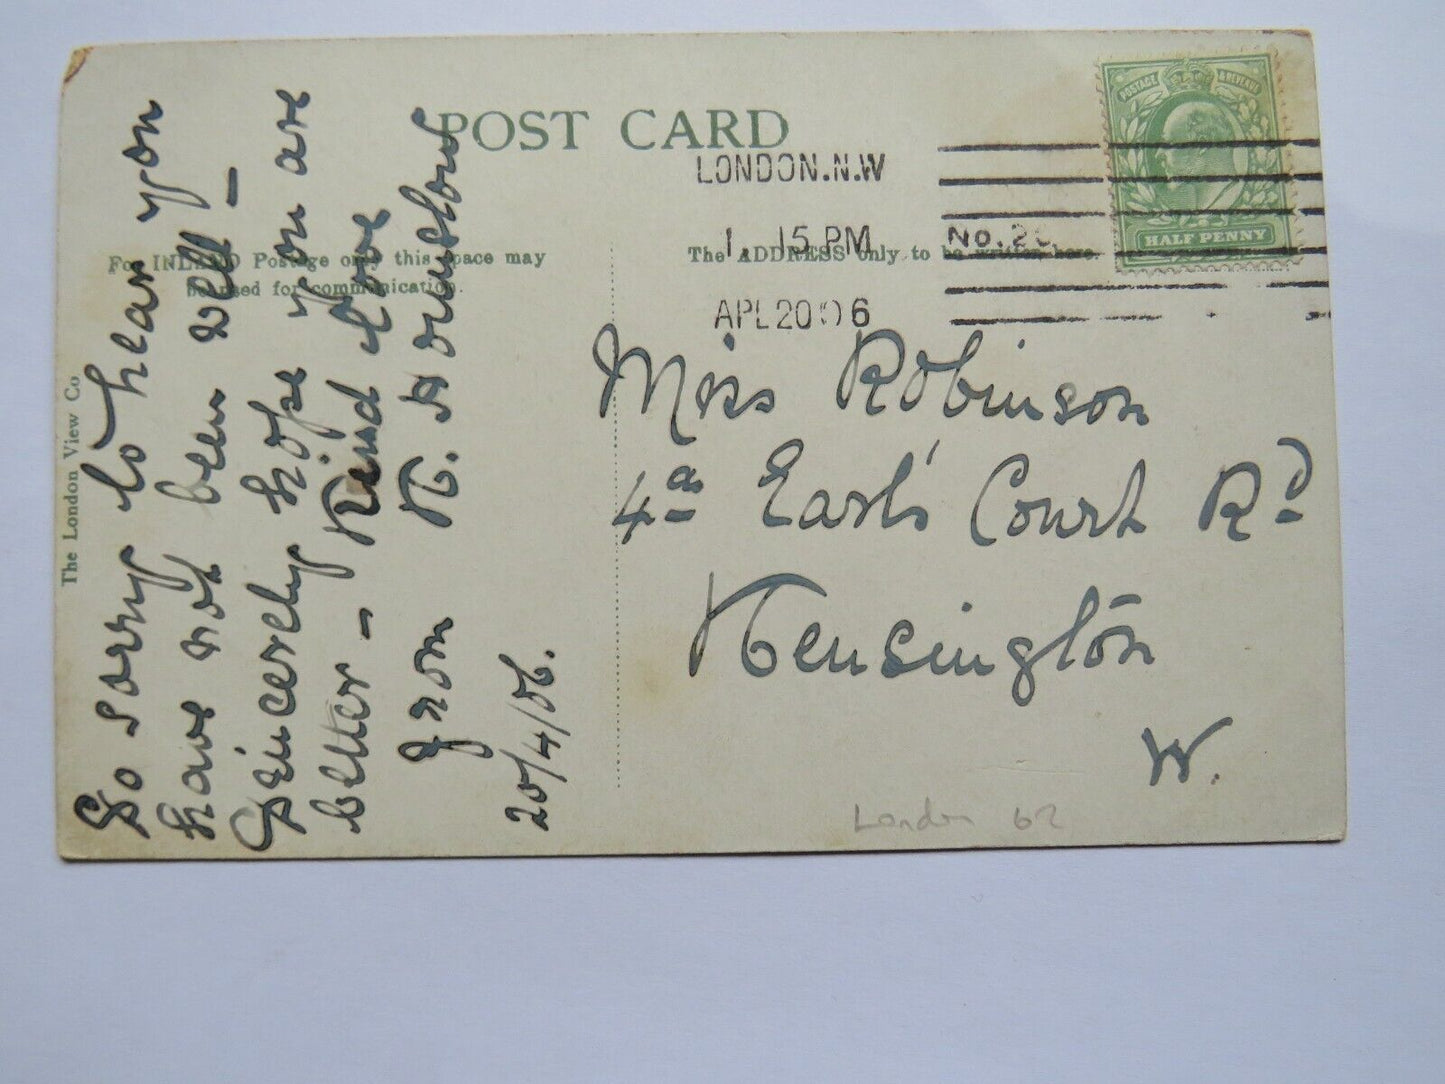 POST CARD
POSTAGE & REVENUE
HALF PENNY
LONDON.N.W
1. 15 PM
APL 20 06
No. 2
For INLAND Postage only this space may
be used for communication.
The ADDRESS only to be written here.
The London View Co
So sorry to hear you
have not been well –
Sincerely hope you are
better – Kind Love
From K.
20/4/06.
Miss Robinson
4a Earl's Court Rd
Kensington
W.
London 62